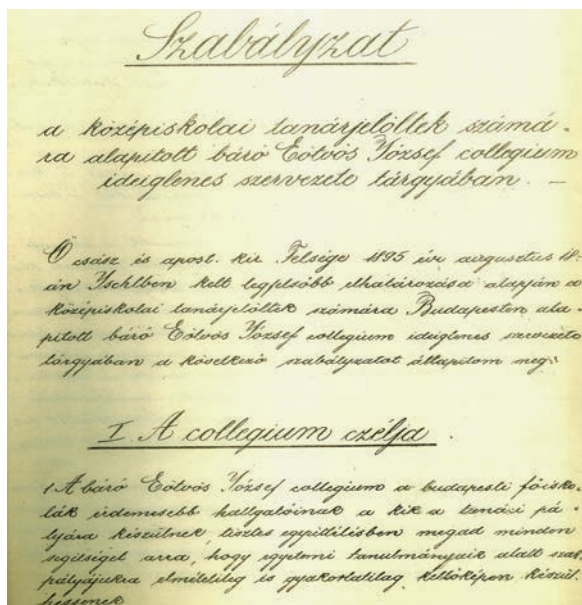 Szabályzat
a középiskolai tanárjelöltek számá-
ra alapitott báró Eötvös József collegium
ideiglenes szervezete tárgyában. —
Ő csász és apost. kir. Felsége 1895 évi augusztus 18-
án Ischlben kelt legfelsőbb elhatározása alapján a
középiskolai tanárjelöltek számára Budapesten ala-
pitott báró Eötvös József collegium ideiglenes szervezete
tárgyában a következő szabályzatot állapitom meg:
I A collegium czélja.
1 A báró Eötvös József collegium a budapesti főisko-
lák érdemesebb hallgatóinak a kik a tanári pá-
lyára készülnek, tisztes együttlésben megad minden
segitséget arra, hogy egyetemi tanulmányaik alatt szak-
pályájukra elméletileg és gyakorlatilag kellőképen készül-
hessenek